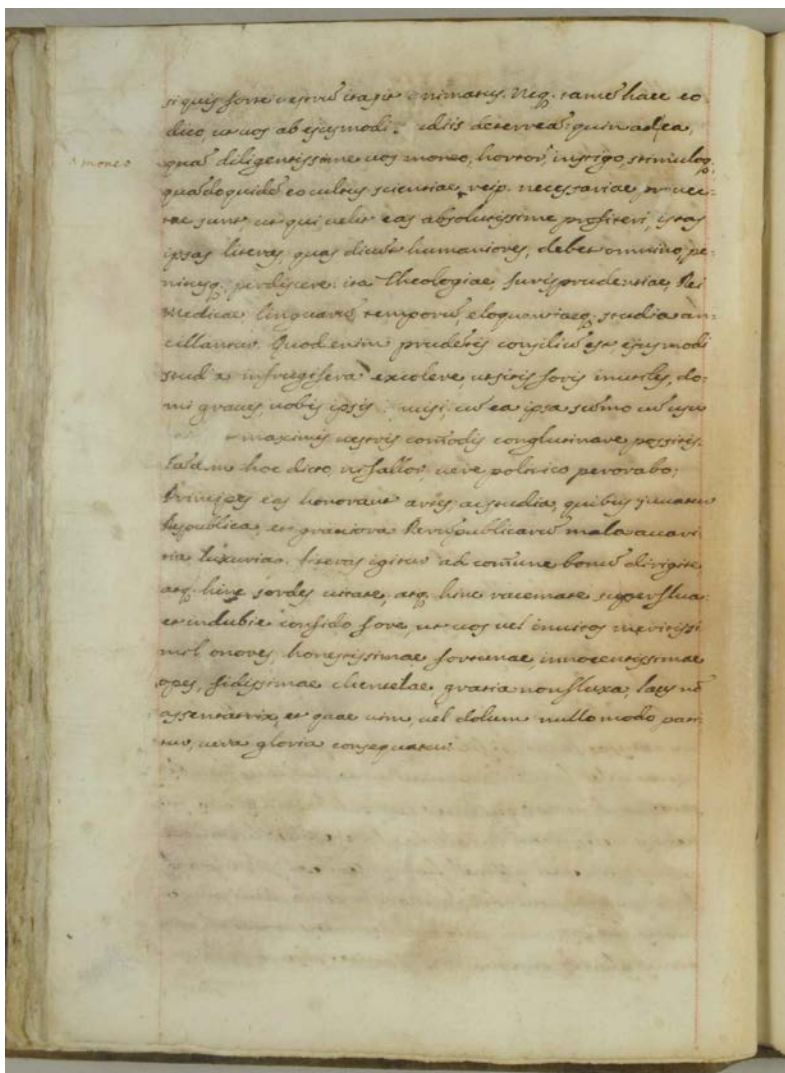 si quis forte vestrũ ita sit animatus. Neq. tamẽ haec eo
dico, ut vos ab ejusmodi studiis deterreã: quin ad ea,
quã diligentissime vos moneo, hortor, instigo, stimuloq.
moneo
quãdoquidẽ eo cultus scientiae reip. necessariae provec-
tae sunt, ut qui velit eas absolutissime profiteri, istas
ipsas literas, quas dicũt humaniores, debet omnino, pe-
nitusq. perdiscere: ita Theologiae, Jurisprudentiae, Rei
Medicae, linguarũ, temporũ, eloquentiaeq. studia an-
cillantur. Quod enim prudẽtis consiliũ est, ejusmodi
studia infrugifera excolere, ut sitis foris inutiles, do-
mi graves vobis ipsis nisi, cũ ea ipsa sũmo cũ usu
maximis vestris comõdis conglutinare possitis.
Tãdem hoc dicto, ni fallor vere politico perorabo;
Principes eas honorant artes, ac studia, quibus juvatur
Respublica, et graviora Rerũpublicarũ mala avari
tia luxuria. literas igitur ad comũne bonũ dirigite,
atq. hinc sordes vitate, atq. hinc racemate superflua:
et indubie confido fore, ut vos vel invitos meritissi
mi honores, honestissimae fortunae, innocentissimae
opes, fidissimae clientelae, gratia non fluxa, laus nõ
assentatrix, et quae vim, vel dolum nullo modo pati
tur, vera gloria consequatur.